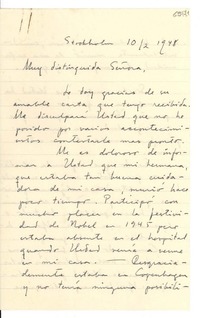 Stockholm 10/2 1948
Muy distinguida Señora,
Le doy gracias de su
amable carta que tengo recibida.
Me disculpará Usted que no he
podido por varios acontecimi-
entos contestarle mas pronto.
Me es doloroso de infor-
mar a Usted que mi hermana,
que estaba tan buena cuida-
dora de mi casa, murió hace
poco tiempo. Participé con
mucho placer en la festivi-
dad de Nobel en 1945 pero
estaba absente en el hospital
quando Usted venía a cena
en mi casa. — Desgracia-
damente estaba en Copenhagen
y no tenía ninguna posibili-